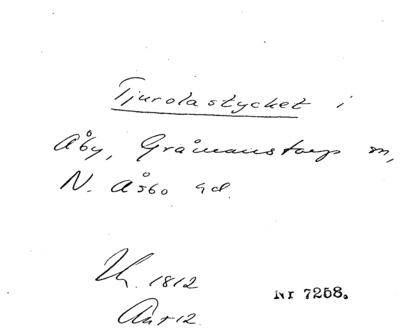 Tjurolastycket i
Åby, Gråmanstorp sn,
N. Åsbo hd.
1812
Nr 7258.